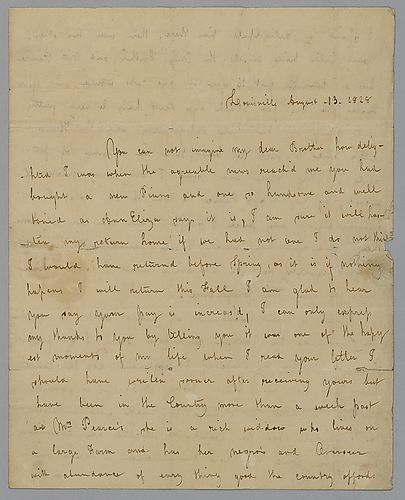 Louisville August - 13. 1828
You can not imagine my dear Brother how deligh-
ted I was when the agreable news reach'd me you had
bought a new Piano and one so handsome and well
toned as Ann Eliza says it is, I am sure it will has-
ten my return home if we had not one I do not think
I would have returnd before Spring, as it is if nothing
happens I will return this Fall I am glad to hear
you say your pay is increasd, I can only express
my thanks to you by telling you it was one of the happy
est moments of my life when I read your letter I
should have writen sooner after receiving yours but
have been in the Country more than a week past
at Mrs Pearce's she is a rich widdow who lives on
a large Farm and has her negros and Overseer
with abundance of every thing good the country affords